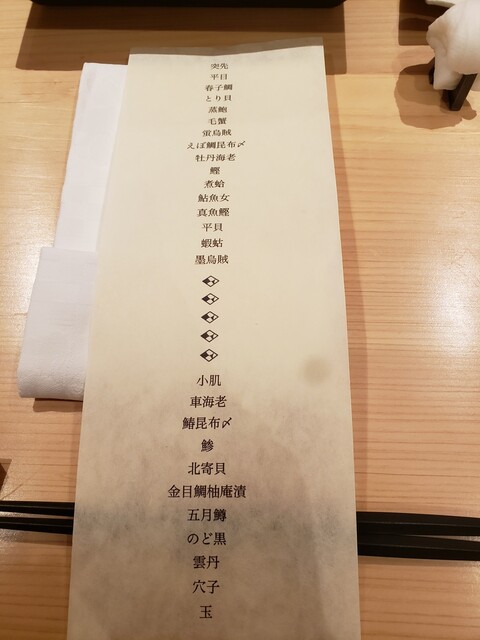 突先
平目
春子鯛
とり貝
蒸鮑
毛蟹
蛍烏賊
えぼ鯛昆布〆
牡丹海老
鰹
煮蛤
鮎魚女
真魚鰹
平貝
蝦蛄
墨烏賊
小肌
車海老
鰆昆布〆
鯵
北寄貝
金目鯛柚庵漬
五月鱒
のど黒
雲丹
穴子
玉